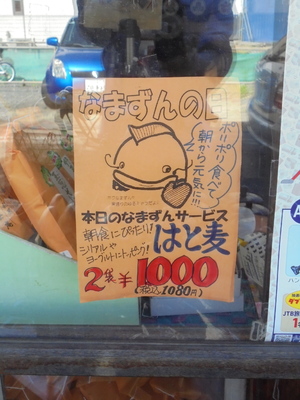 なまずんの日
ポリポリ食べて
朝から元気に!!!
本日のなまずんサービス
朝食にぴったり!
シリアルや
ヨーグルトにトッピング!
はと麦
2袋¥1000
(税込1080円)
JTB旅